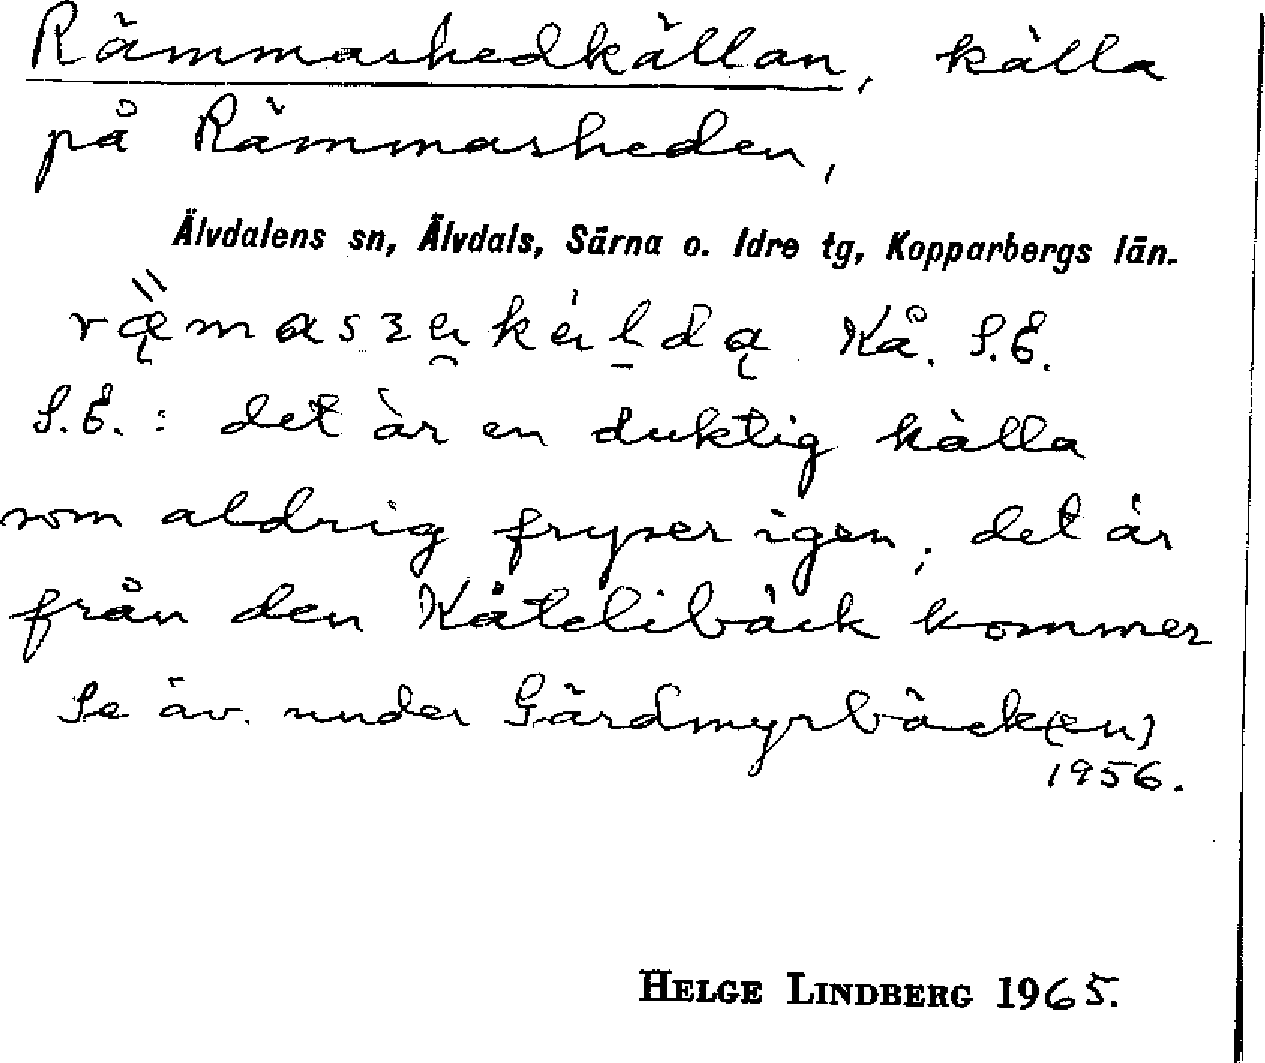 Rämmashedkällan, källa
på Rämmasheden,
Älvdalens sn, Älvdals, Särna o. Idre tg, Kopparbergs län.
Kå. S.E.
S.E.: det är en duktig källa
som aldrig fryser igen, det är
från den Kåtelibäck kommer
Se äv. under Gärdmyrbäck(en)
1956.
HELGE LINDBERG 1965.